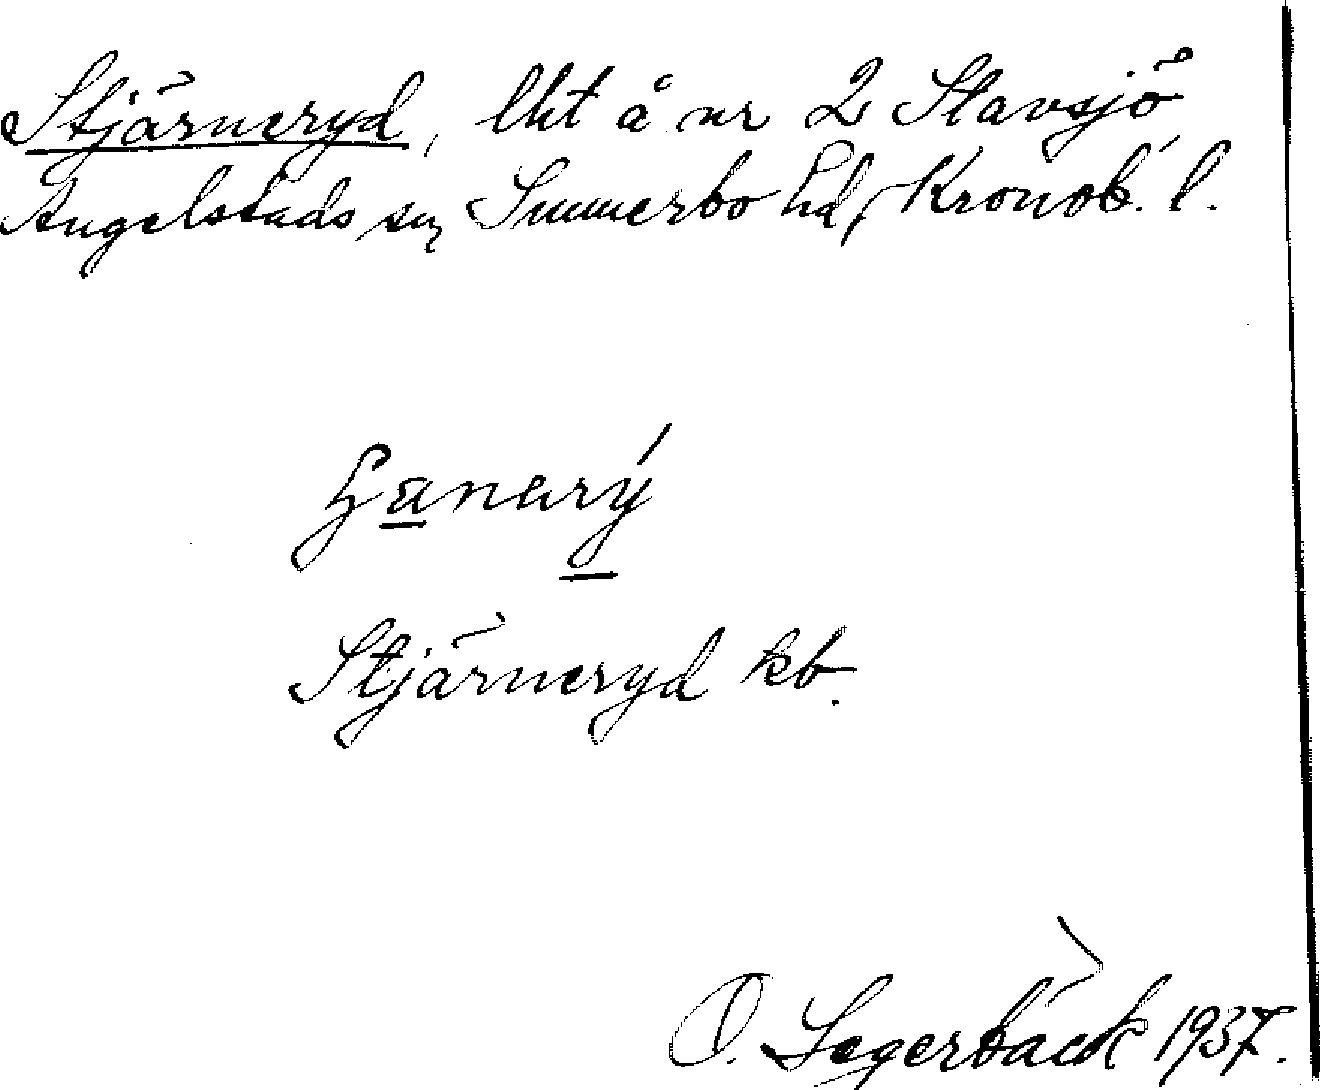 Stjärneryd, lht å nr 2 Slavsjö
Angelstads sn, Sunnerbo hd, Kronob. l.
Stjärneryd kb.
O. Segerbäck 1937.